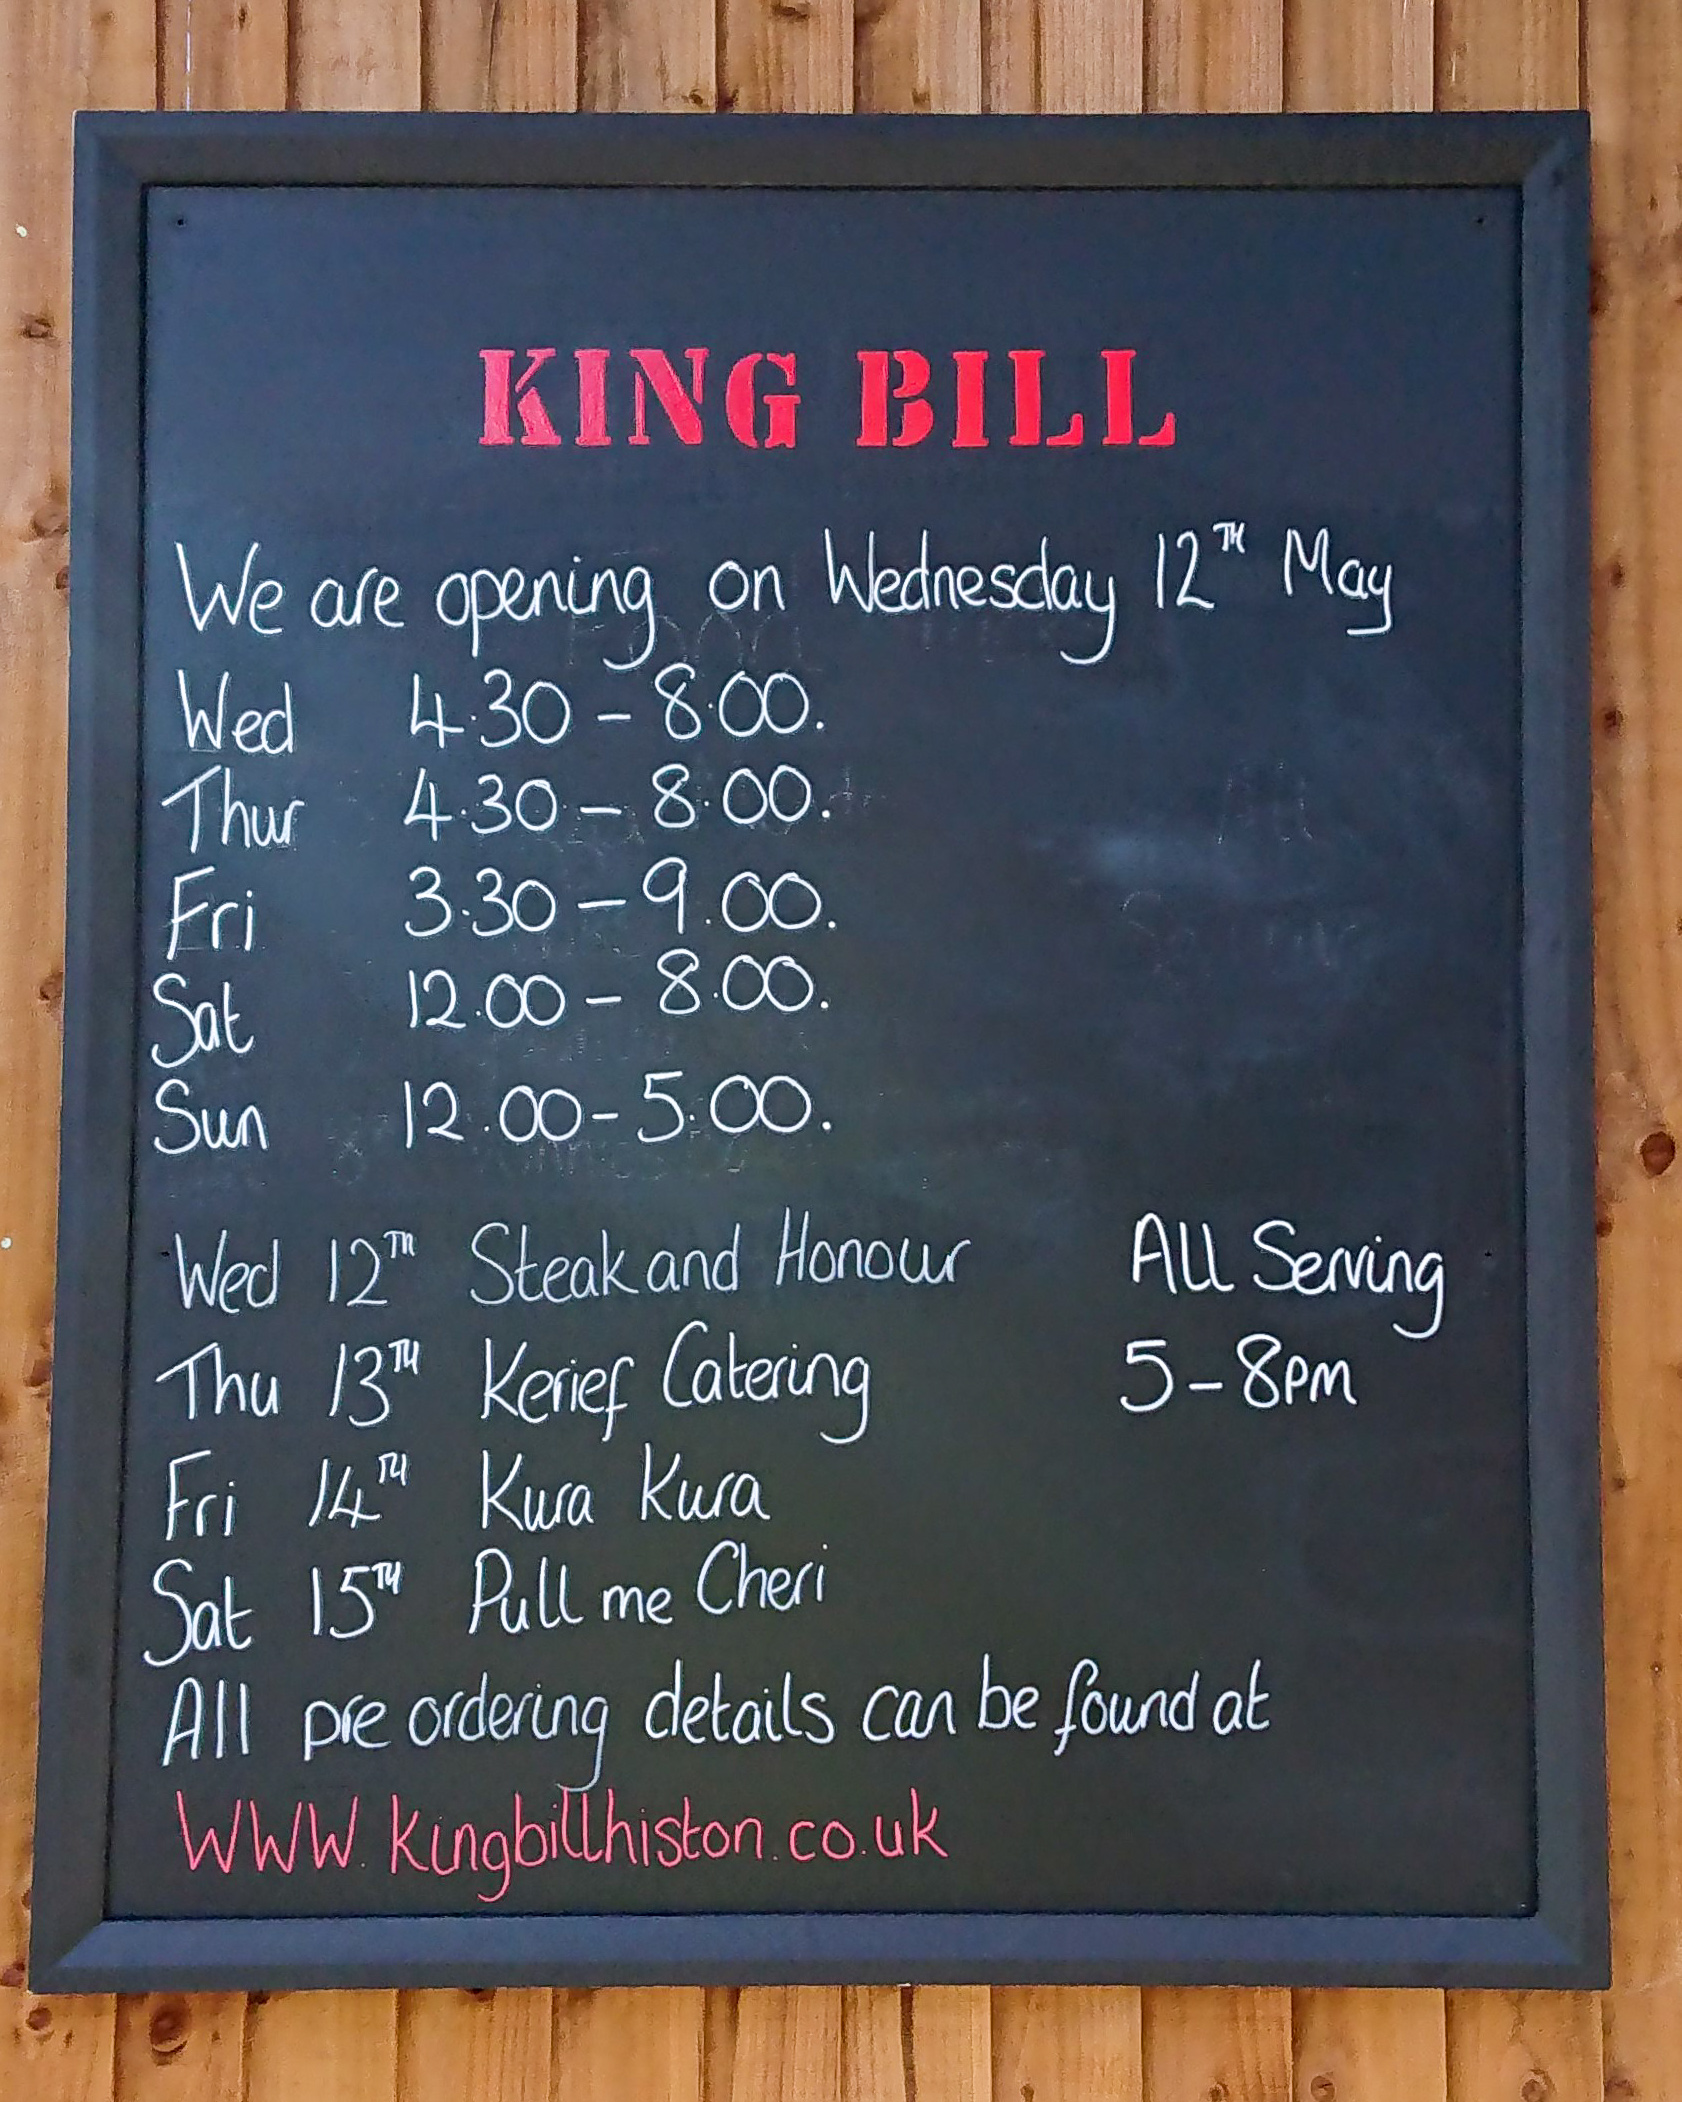 KING BILL
We are opening on Wednesday 12TH May
Wed 4.30 - 8.00.
Thur 4.30 - 8.00.
Fri 3.30 - 9.00.
Sat 12.00 - 8.00.
Sun 12.00 - 5.00.
Wed 12TH Steak and Honour All Serving
Thu 13TH Kerief Catering 5 - 8PM
Fri 14TH Kura Kura
Sat 15TH Pull me Cheri
All pre ordering details can be found at
WWW.kingbillhiston.co.uk